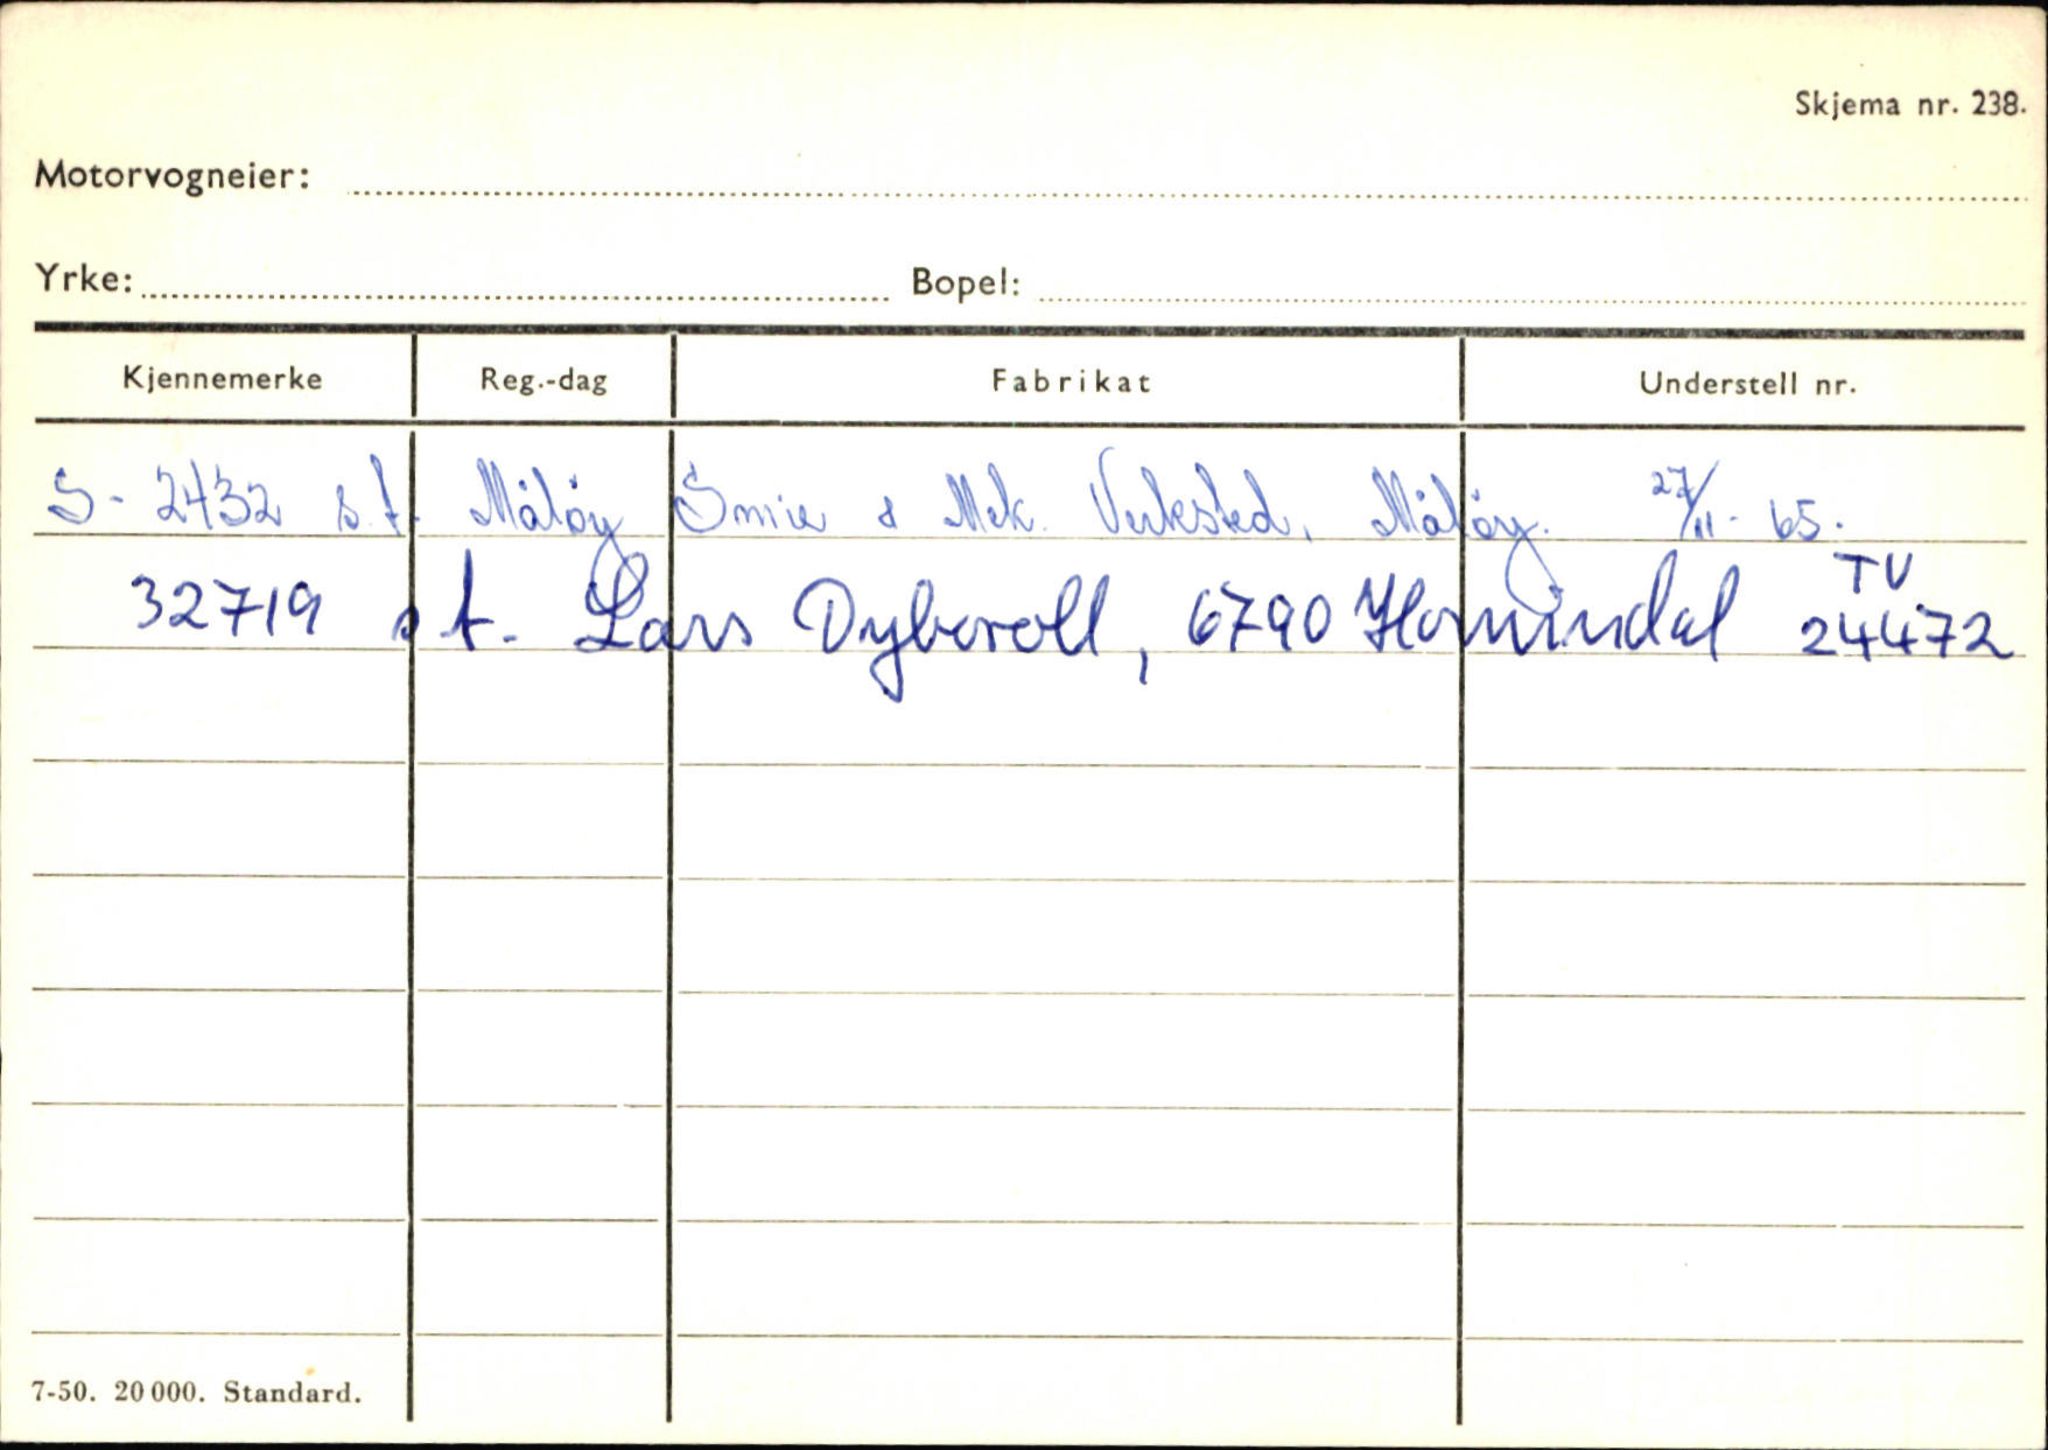 Skjema nr. 238.
Motorvogneier:
Yrke: Bopel:
Kjennemerke Reg.-dag Fabrikat Understell nr.
S- 2432 s.t. Måløy Smie & Mek. Verksted, Måløy. 27/11-65.
32719 s.t. Lars Dybvoll, 6790 Hornindal TV 24472
7-50. 20 000. Standard.